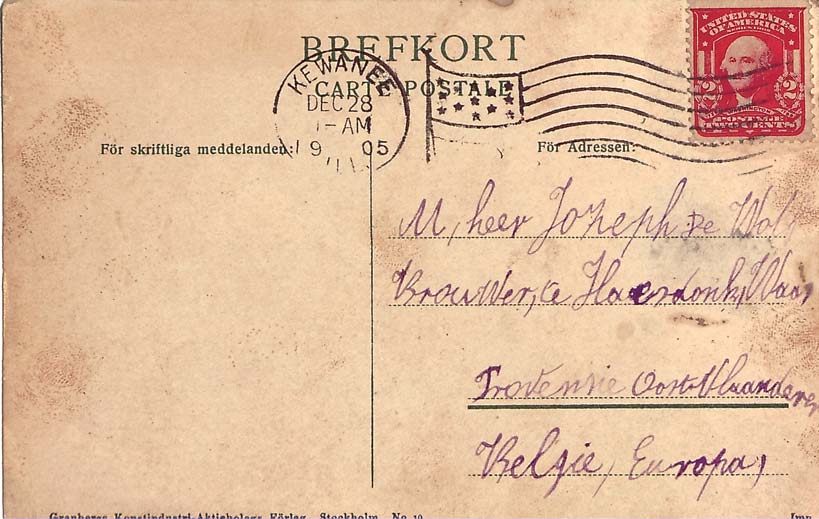 BREFKORT
CARTE POSTALE
KEWANEE
DEC 28
1-AM
1905
ILL.
UNITED STATES
OF AMERICA
SERIES 1902
2 2
POSTAGE
TWO CENTS
För skriftliga meddelanden:
För Adressen:
M, heer Jozeph De Wolf
Brouwer, te Haesdonk, Waas
Provensie Oost-Vlaanderen
Belgie, Europa,
Granbergs Konstindustri-Aktiebolags Förlag, Stockholm. No 10
Imp